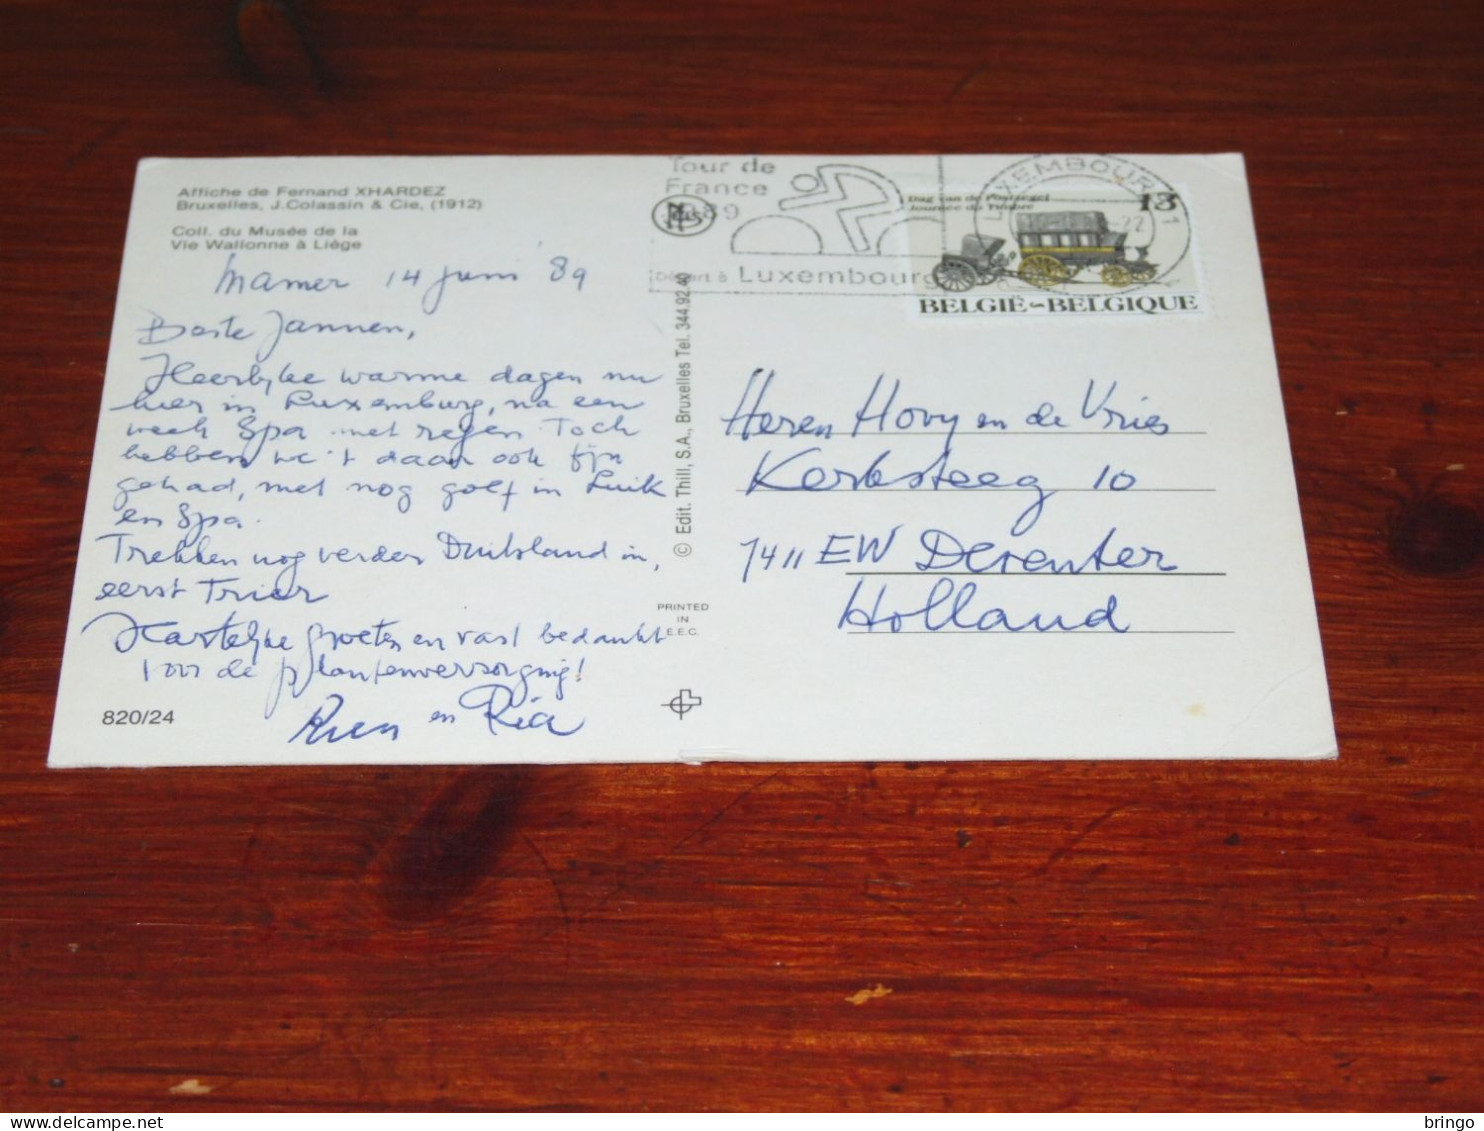 Affiche de Fernand XHARDEZ
Bruxelles, J.Colassin & Cie, (1912)
Coll. du Musée de la
Vie Wallonne à Liège
Mamer 14 juni 89
Beste Jannen,
Heerlijke warme dagen nu
hier in Luxemburg, na een
week Spa met regen. Toch
hebben we 't daar ook fijn
gehad, met nog golf in Luik
en Spa.
Trekken nog verder Duitsland in,
eerst Trier
Hartelijke groeten en vast bedankt
voor de plantenverzorging!
Rien en Ria
820/24
© Edit. Thill, S.A., Bruxelles Tel. 344.92.40
PRINTED
IN
E.E.C.
Tour de
France
1989
Départ à Luxembourg
LUXEMBOURG 1
Dag van de Postzegel
Journée du Timbre
13
BELGIË~BELGIQUE
Heren Hovy en de Vries
Kerksteeg 10
7411 EW Deventer
Holland
bringo